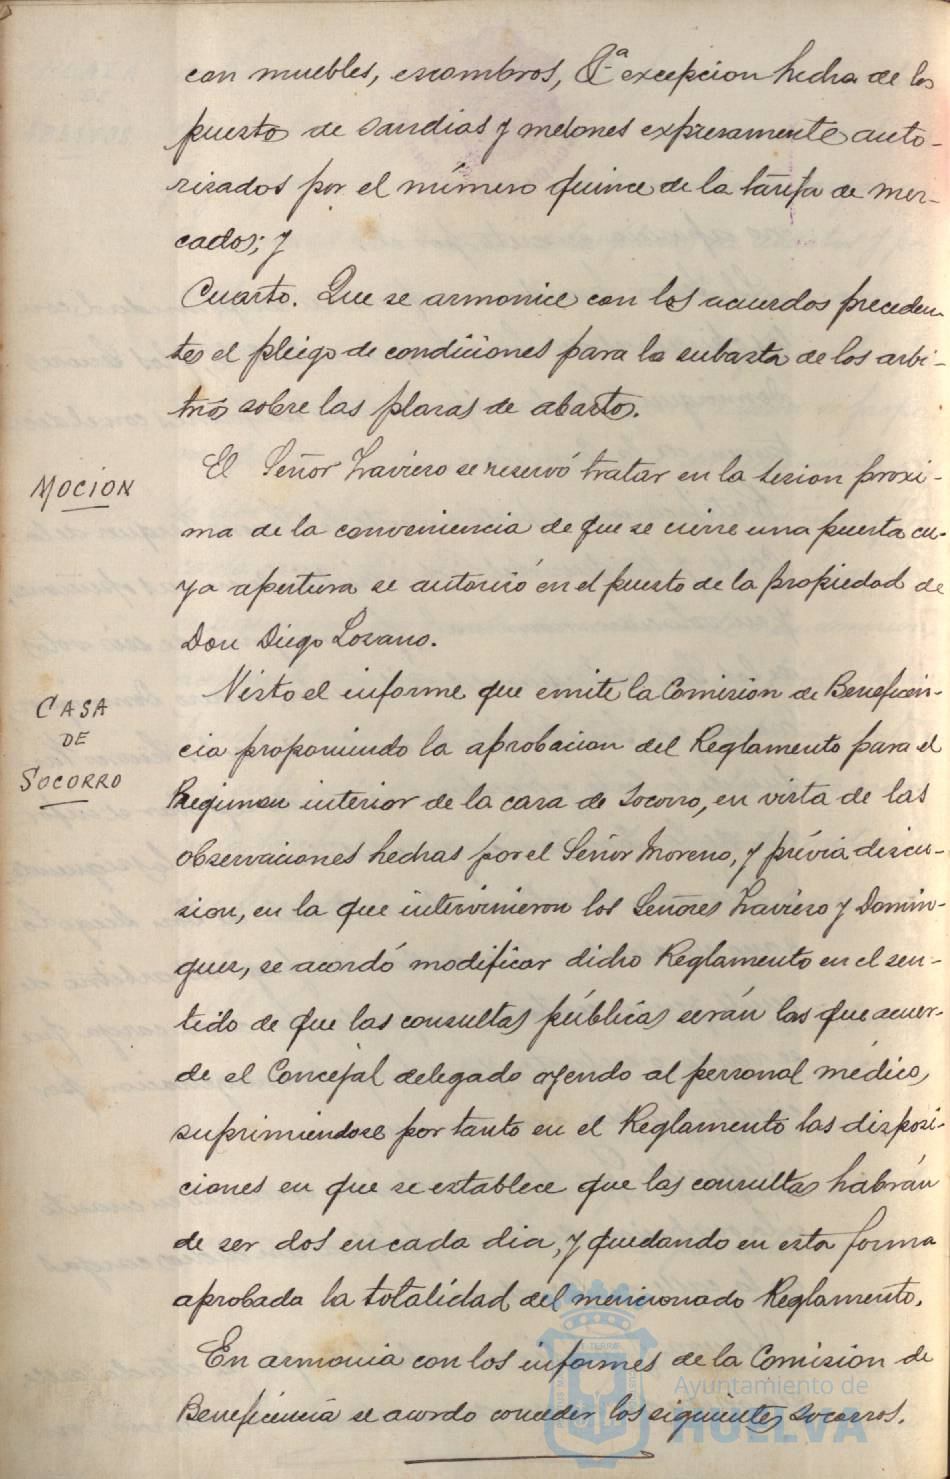 con muebles, escombros, &ª excepcion hecha de los
puesto de sandias y melones expresamente auto-
rizados por el número quince de la tarifa de mer-
cados; y
Cuarto. Que se armonice con los acuerdos preceden
tes el pliego de condiciones para la subasta de los arbi-
trios sobre las plazas de abastos.
MOCION
El Señor Traviero se reservó tratar en la sesion proxi-
ma de la conveniencia de que se cierre una puerta cu-
ya apertura se autorizó en el puesto de la propiedad de
Don Diego Lozano.
CASA
DE
SOCORRO
Visto el informe que emite la Comision de Beneficen-
cia proponiendo la aprobacion del Reglamento para el
Regimen interior de la casa de Socorro, en vista de las
observaciones hechas por el Señor Moreno, y prévia discu-
sion, en la que intervinieron los Señores Traviero y Domin-
guez, se acordó modificar dicho Reglamento en el sen-
tido de que las consultas públicas serán las que acuer-
de el Concejal delegado oyendo al personal médico,
suprimiendose por tanto en el Reglamento las disposi-
ciones en que se establece que las consultas habrán
de ser dos en cada dia, y quedando en esta forma
aprobada la totalidad del mencionado Reglamento.
En armonia con los informes de la Comision de
Beneficencia se acordo conceder los siguientes socorros.
Ayuntamiento de
HUELVA